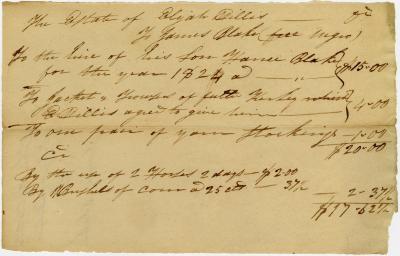 The Estate of Elijah Billis Dr
To James Blake (free negro)
To the hire of his Son Hanse Blake
for the year 1824 a $15-00
To Jacket & Trowsers of full'd Kersey which
E Billis agreed to give him 4-00
To one pair of yarn Stockings 1-00
$20-00
Cr
By the use of 2 Horses 2 days $2.00
By Bushels of Corn a 25 cts 37½ 2-37½
$17-62½